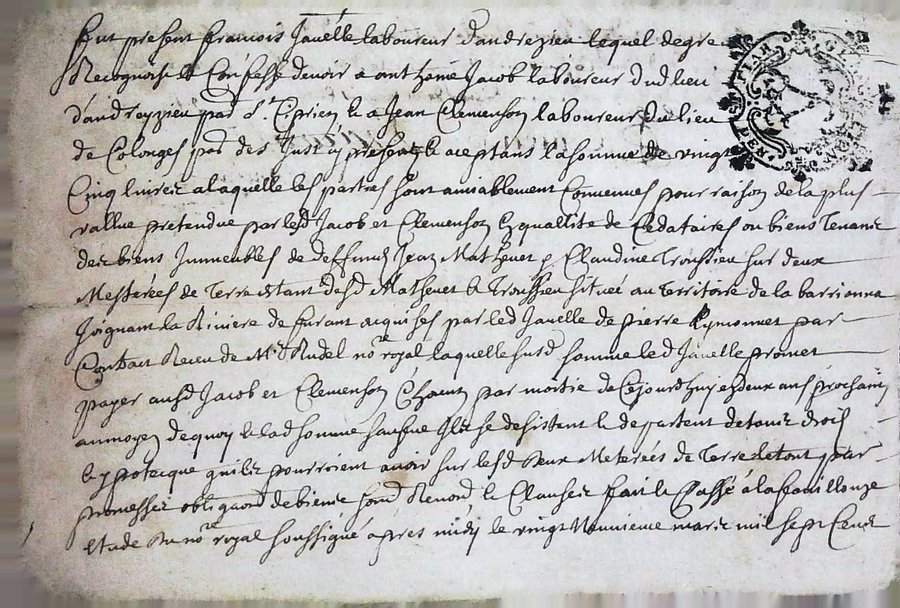 fut present francois Javelle laboureur d'andrezieu lequel degre
Recognoist & Confesse devoir a anthoine Jacob laboureur dud lieu
d'andreyzieu par St Ciprien & a Jean Clemenson laboureur du lieu
de Colonges par des Just cy presentz & aceptans la somme de vingt
Cinq livres a laquelle les parties sont amiablement Convenues pour raison de la plus
vallue pretendue par lesd Jacob et Clemenson En quallité de Cedataires ou biens Tenans
des biens Immeubles de deffunts Jean Mathevet & Claudine Troussieu sur deux
Mesterées de Terre Estant desd Mathevet & Troussieu située au Territoire de la barrionna
Joignant la Riviere de furant acquises par led Javelle de pierre par
Contract Receu de Me Rudel nore royal laquelle susd somme led Javelle promet
payer ausd Jacob et Clemenson Chacun par moitié de Cejourdhuy en deux ans prochains
au moyen de quoy & lad somme Ilz se desistent & departent de tous droits
& ypotecque quilz pourroient avoir sur lesd deux Meterées de Terre le tout par
promesses obligaons de biens Renons & Clauses fait & Passé à la fouillouze
Etude du nore royal soussigné apres midy le vingt neuvieme mars mil sept Cens